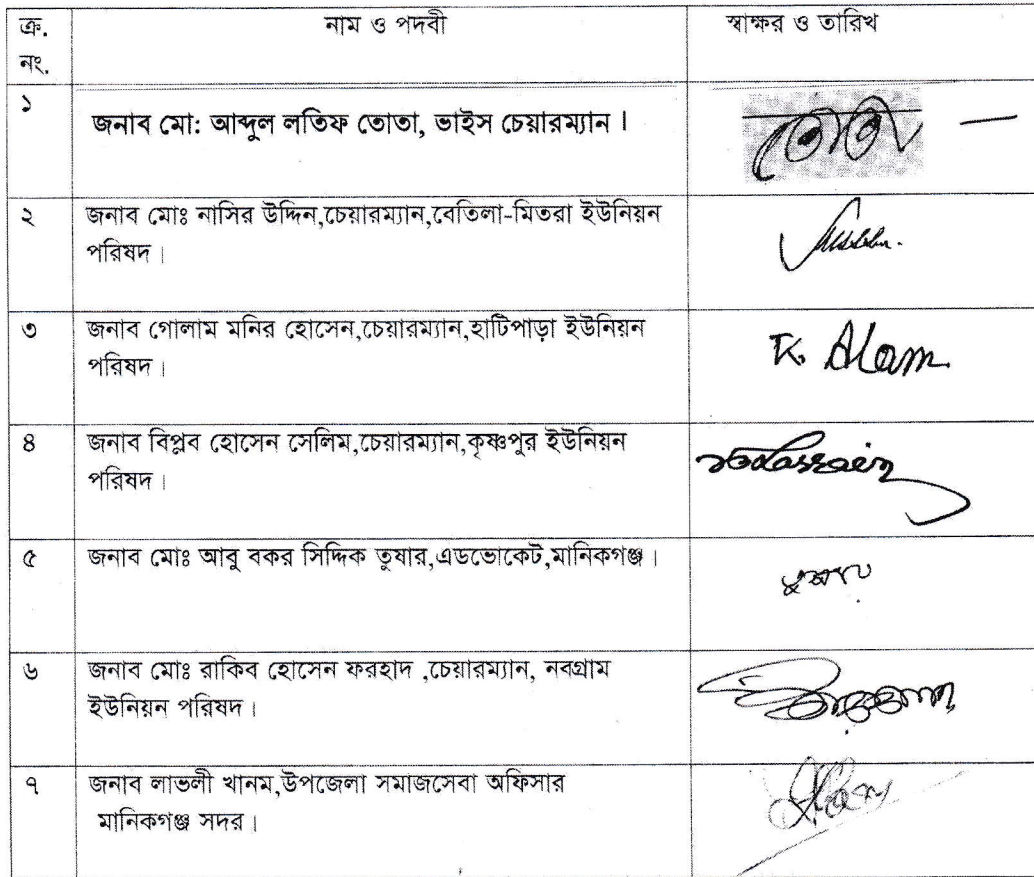 ক্র. নাম ও পদবী স্বাক্ষর ও তারিখ
নং.
১ জনাব মো: আব্দুল লতিফ তোতা, ভাইস চেয়ারম্যান । তোতা
২ জনাব মোঃ নাসির উদ্দিন,চেয়ারম্যান,বেতিলা-মিতরা ইউনিয়ন
পরিষদ ।
৩ জনাব গোলাম মনির হোসেন,চেয়ারম্যান,হাটিপাড়া ইউনিয়ন
পরিষদ । K. Alam
৪ জনাব বিপ্লব হোসেন সেলিম,চেয়ারম্যান,কৃষ্ণপুর ইউনিয়ন
পরিষদ ।
৫ জনাব মোঃ আবু বকর সিদ্দিক তুষার,এডভোকেট,মানিকগঞ্জ ।
৬ জনাব মোঃ রাকিব হোসেন ফরহাদ ,চেয়ারম্যান, নবগ্রাম
ইউনিয়ন পরিষদ ।
৭ জনাব লাভলী খানম,উপজেলা সমাজসেবা অফিসার
মানিকগঞ্জ সদর ।